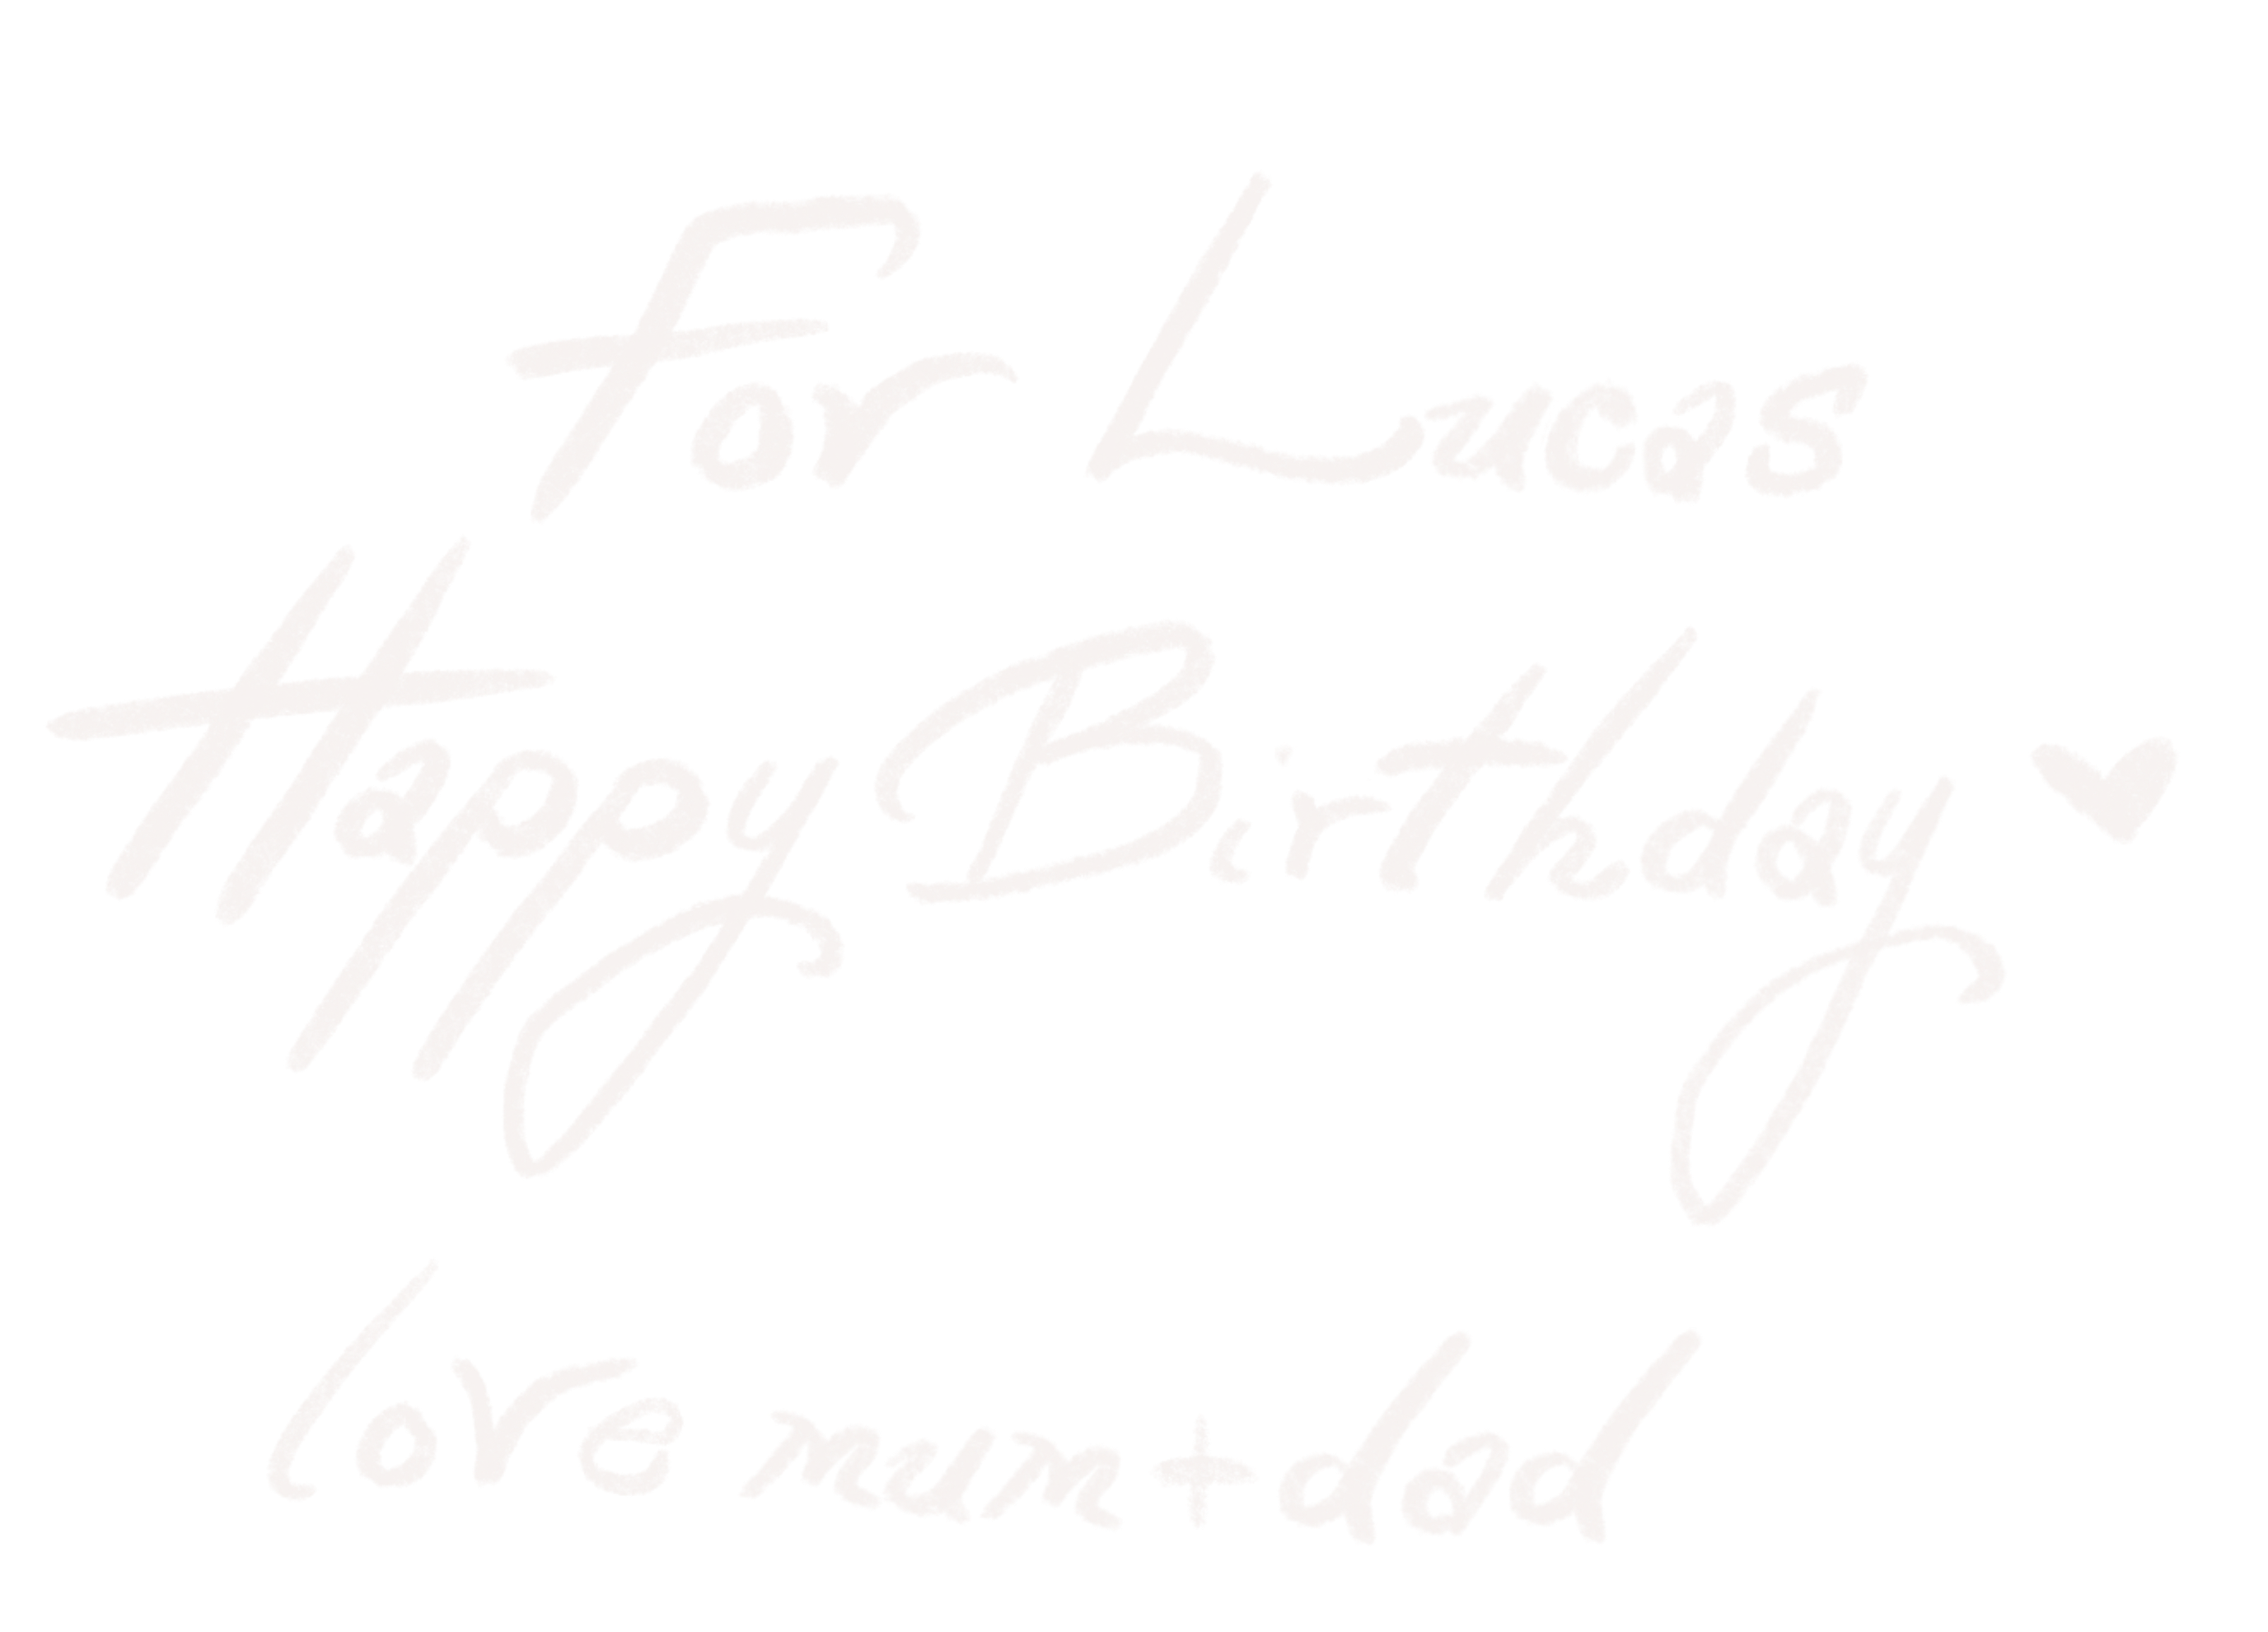 For Lucas
Happy Birthday ♥
love mum + dad